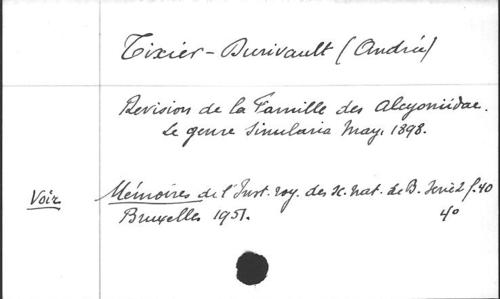 Tixier-Durivault (Andrée)
Revision de la Famille des Alcyoniidae.
Le genre Sinularia May, 1898.
Voir
Mémoires de l'Inst. roy. des Sc. nat. de B. Série 2 f. 40
Bruxelles 1951.
40